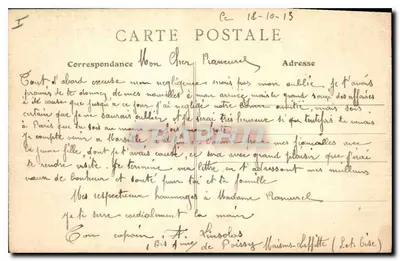 I
Ce 18-10-13
CARTE POSTALE
Correspondance Adresse
Mon Cher Rancurel
Tout d'abord excuse mon negligence mais pas mon oublie. Je t'avais
promis de te donner de mes nouvelles à mon arrivée mais le grand souci des affaires
a été cause que jusqu'à ce jour j'ai négligé notre bonne amitié, mais sois
certain que je ne saurais oublier et je serai très heureux si que toutefois tu venais
à Paris que tu sois au
je compte mes fiançailles avec
une jeune fille, dont je t'avais causé, ce sera avec grand plaisir que j'irai
te rendre visite. Je termine ma lettre en t'adressant mes meilleurs
vœux de bonheur et santé pour toi et ta famille.
Mes respectueux hommages à Madame Rancurel
je te serre cordialement la main
Ton copain A. Linsolas
1 bis rue de Poissy Maisons-Laffitte (Set Oise)
CARTE POSTALE